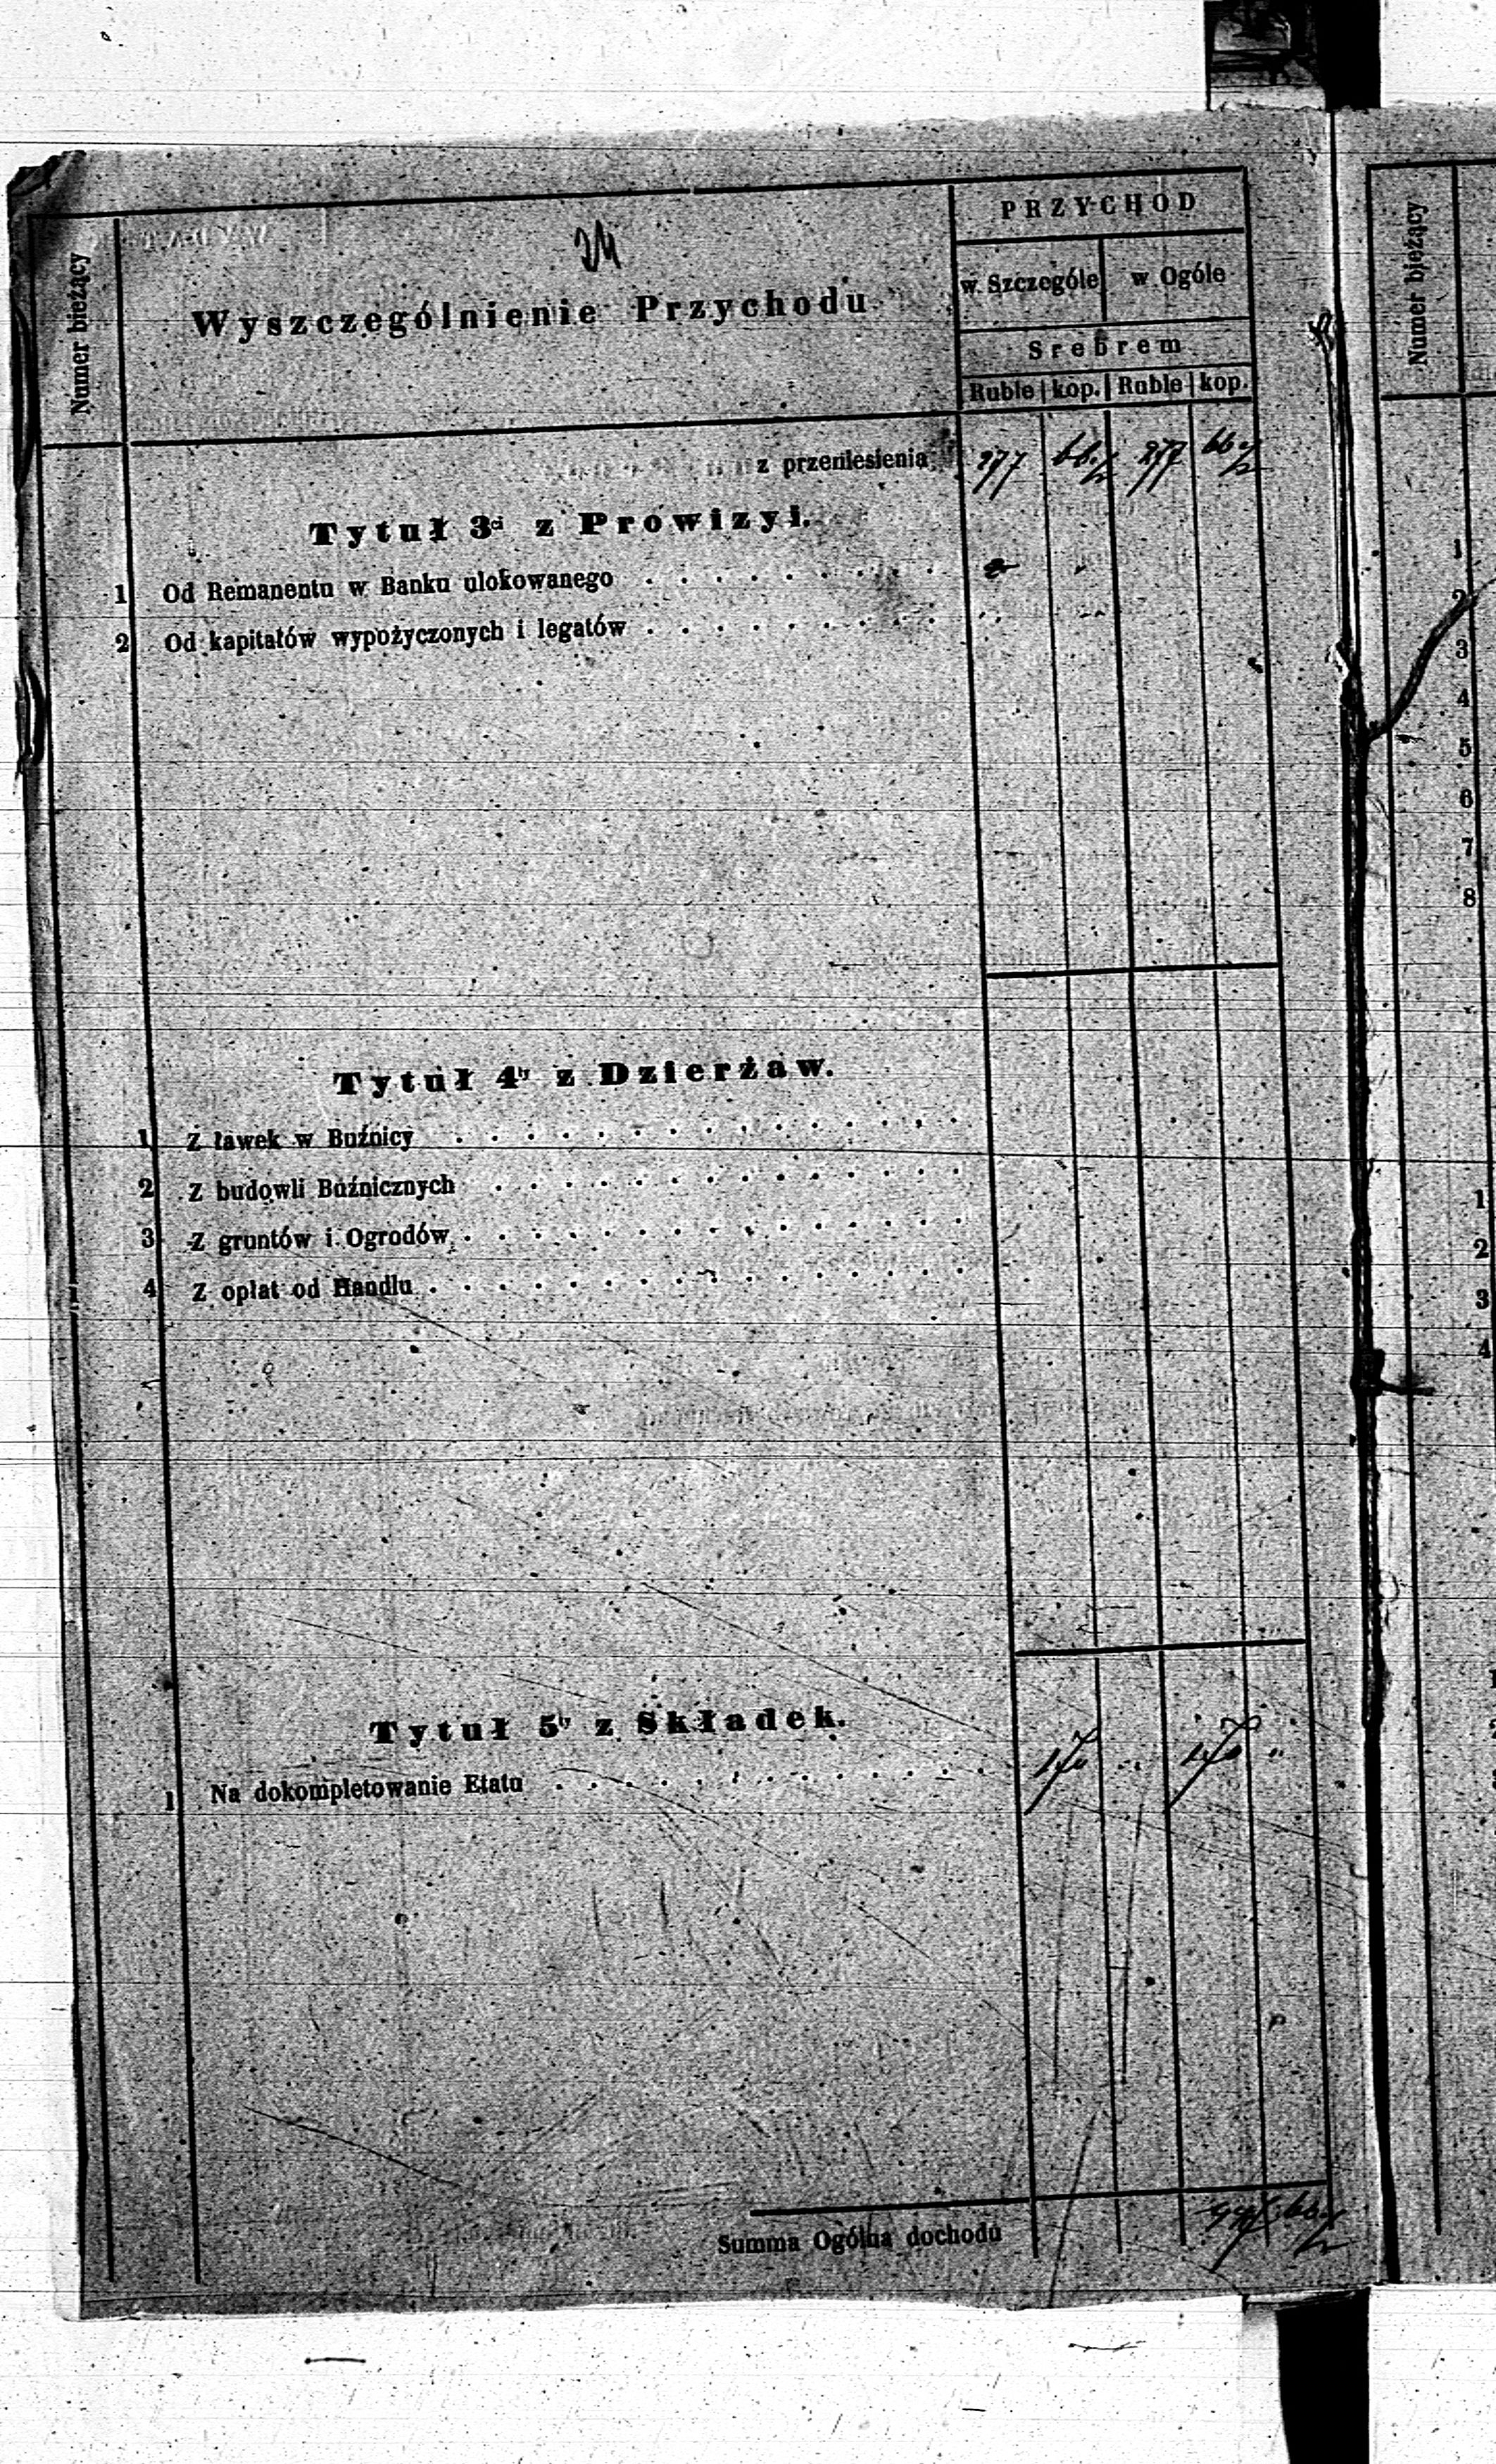 PRZYCHÓD
Numer bieżący
Wyszczególnienie Przychodu
w Szczególe w Ogóle
Srebrem
Ruble kop. Ruble kop.
z przeniesienia 277 277
Tytuł 3ci z Prowizyi.
1 Od Remanentu w Banku ulokowanego
2 Od kapitałów wypożyczonych i legatów
Tytuł 4ty z Dzierżaw.
1 Z ławek w Bużnicy
2 Z budowli Bóżnicznych
3 Z gruntów i Ogrodów
4 Z opłat od Handlu
Tytuł 5ty z Składek.
1 Na dokompletowanie Etatu
Summa Ogólna dochodu
Numer bieżący
1
2
3
4
5
6
7
8
1
2
3
4